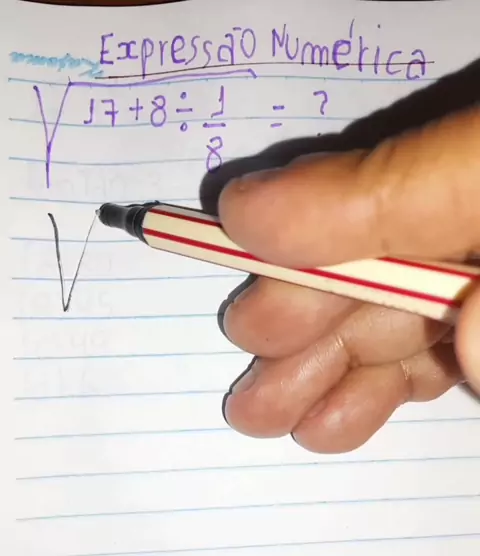 Expressão Numérica
√17+8÷1/8 = ?
√